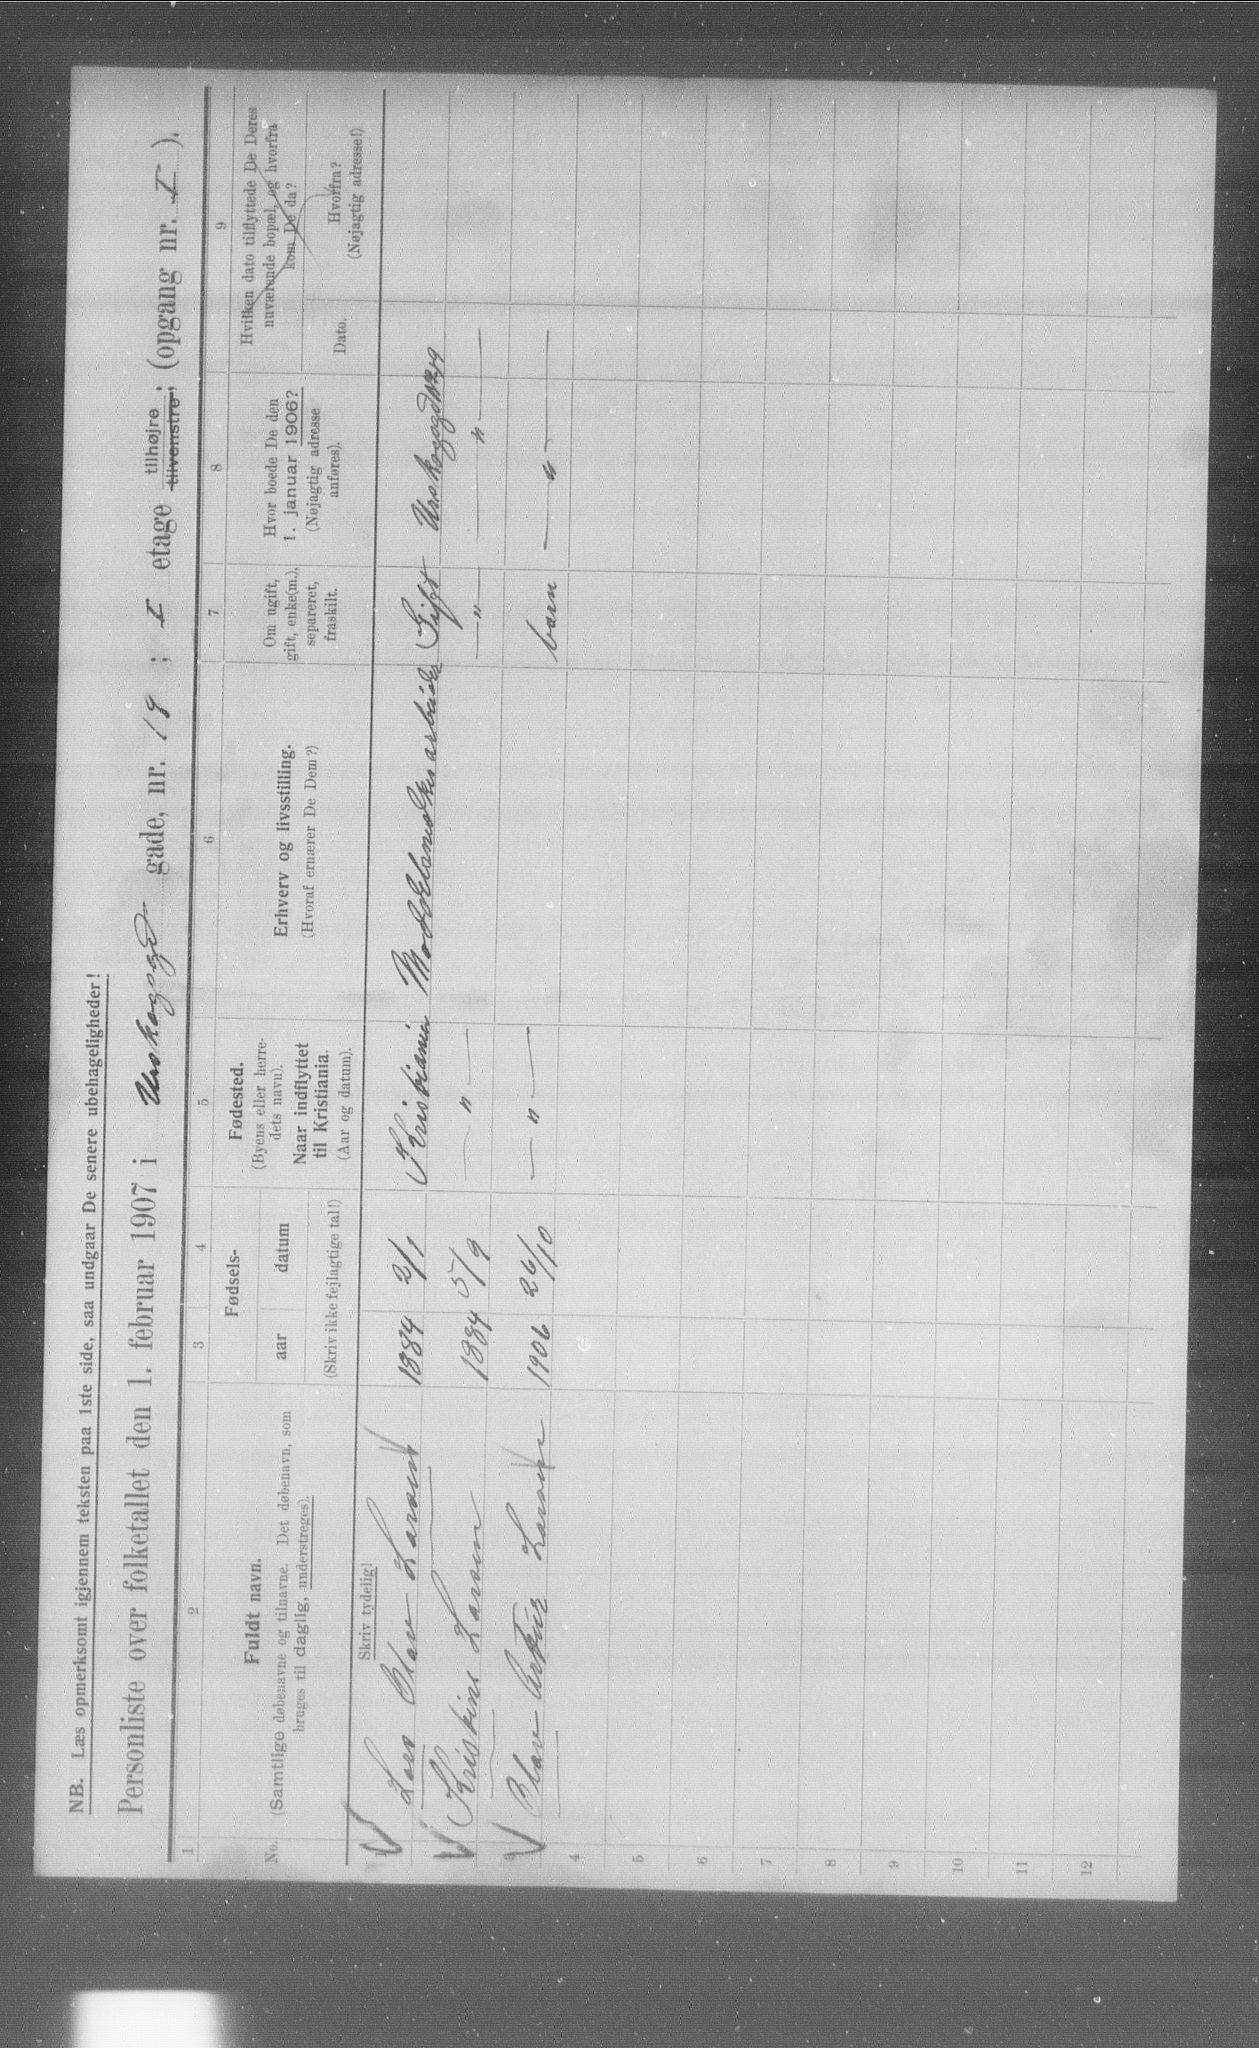 NB. Læs opmerksomt igjennem teksten paa 1ste side, saa undgaar De senere ubehageligheder!
Personliste over folketallet den 1. februar 1907 i Urskogsgd gade, nr. 18 ; I etage tilhøjre tilvenstre; (opgang nr. I ).
1 2 3 4 5 6 7 8 9
No.
Fuldt navn.
(Samtlige døbenavne og tilnavne. Det døbenavn, som
bruges til daglig, understreges).
Skriv tydelig!
Fødsels-
aar datum
(Skriv ikke fejlagtige tal!)
Fødested.
(Byens eller herre-
dets navn).
Naar indflyttet
til Kristiania.
(Aar og datum).
Erhverv og livsstilling.
(Hvoraf ernærer De Dem?)
Om ugift,
gift, enke(m.),
separeret,
fraskilt.
Hvor boede De den
1. januar 1906?
(Nøjagtig adresse
anføres).
Hvilken dato tilflyttede De Deres
nuværende bopæl, og hvorfra
kom De da?
Dato.
Hvorfra?
(Nøjagtig adresse!)
Lars Olav Larsen 1884 2/1 Kristiania Gift
Kristine Larsen 1884 5/9 — " — — " — — " —
3 Olav Artur Larsen 1906 26/10 — " — barn — " —
4
5
6
7
8
9
10
11
12